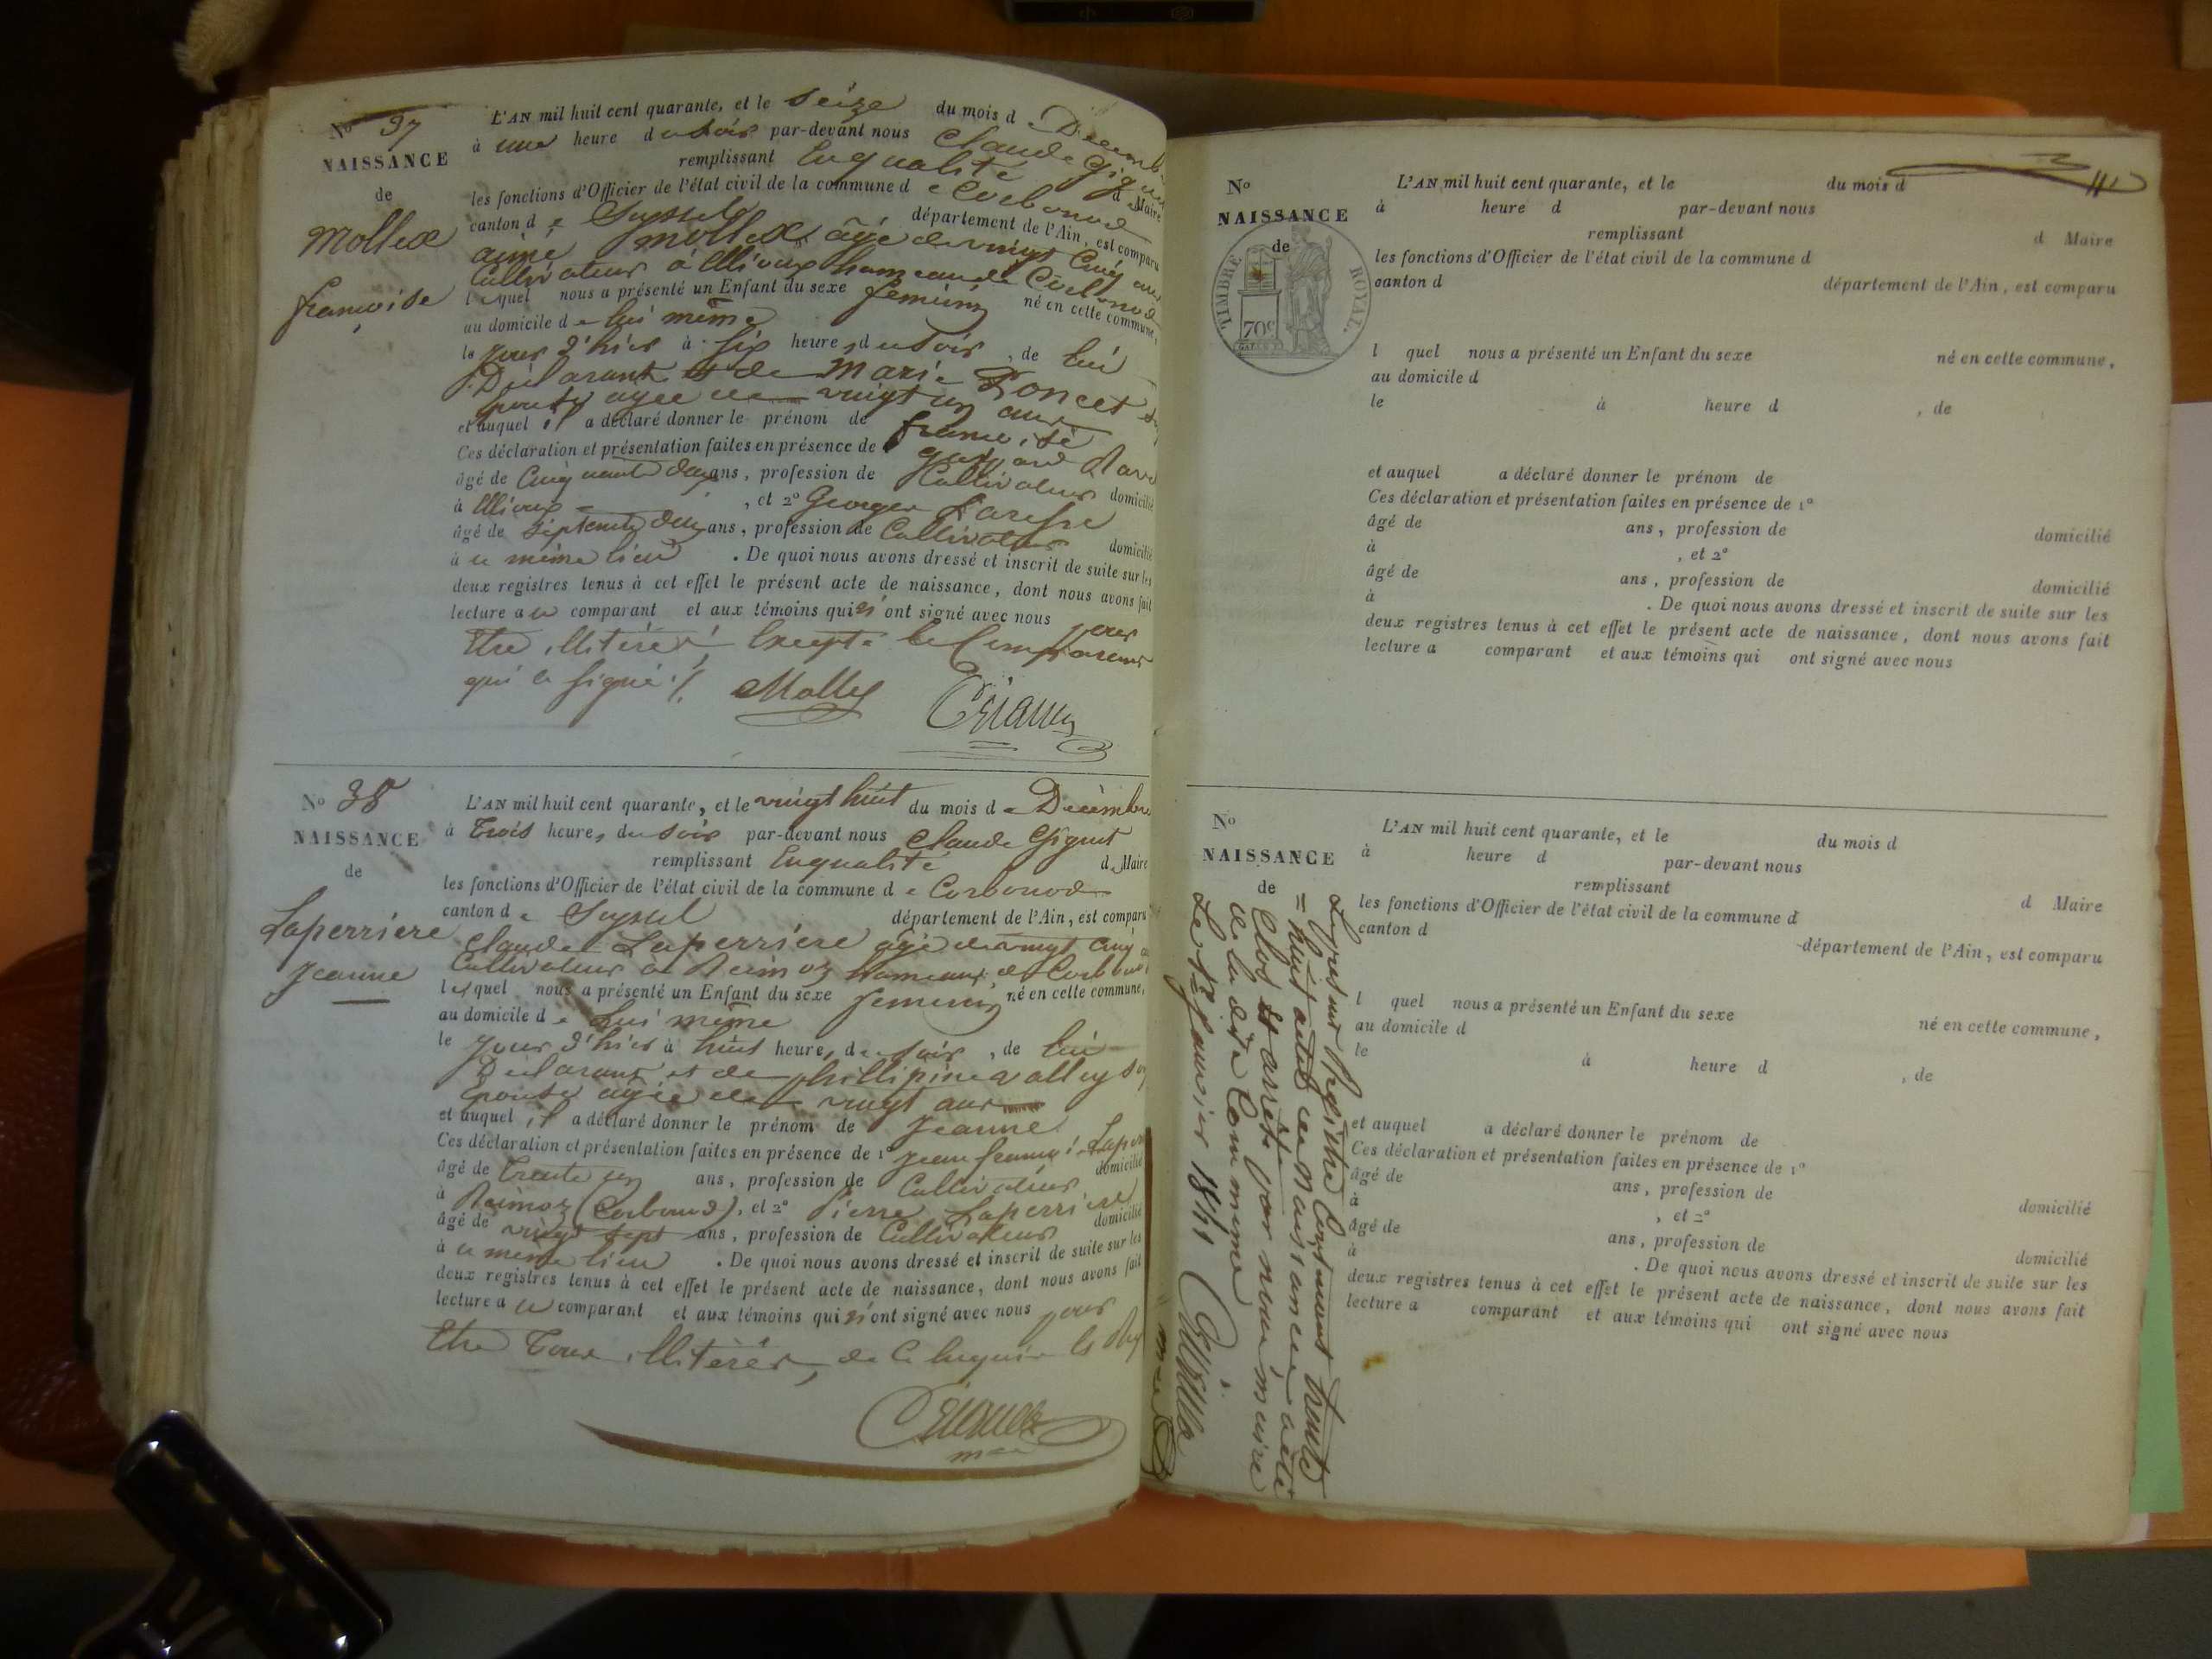 N° 37
NAISSANCE
de
Mollex
françoise
L'AN mil huit cent quarante, et le Seize du mois d e Décemb
à une heure du Soir par-devant nous Claude
remplissant En qualité d e Maire
les fonctions d'Officier de l'état civil de la commune d e Corbonod
canton d e Seyssel département de l'Ain, est comparu
aimé Mollex âgé de vingt Cinq
Cultivateur à hameau de Corbonod
lequel nous a présenté un Enfant du sexe feminin né en cette commune,
au domicile d e lui même
le jour d'hier à Six heures du Soir, de lui
Déclarant et de Marie Poncet
épouse agée de vingt un ans
et auquel il a déclaré donner le prénom de françoise
Ces déclaration et présentation faites en présence de
âgé de Cinquante deux ans, profession de Cultivateur domicilié
à , et 2° George
âgé de Septente deux ans, profession de Cultivateur domicilié
à ce même lieu . De quoi nous avons dressé et inscrit de suite sur les
deux registres tenus à cet effet le présent acte de naissance, dont nous avons fait
lecture au comparant et aux témoins qui n'ont signé avec nous pour
être illitérés Excepté le Comparant
qui a signé ./. Mollex
N° 38
NAISSANCE
de
Laperriere
Jeanne
L'AN mil huit cent quarante, et le vingt huit du mois d e Décembre
à Trois heures du Soir par-devant nous Claude
remplissant En qualité d e Maire
les fonctions d'Officier de l'état civil de la commune d e Corbonod
canton d e Seyssel département de l'Ain, est comparu
Claude Laperriere âgé de vingt Cinq
Cultivateur à hameau de Corbonod
lequel nous a présenté un Enfant du sexe feminin né en cette commune,
au domicile d e Lui même
le jour d'hier à huit heures du Soir, de lui
Déclarant et de phillipine
épouse agée de vingt ans
et auquel il a déclaré donner le prénom de Jeanne
Ces déclaration et présentation faites en présence de 1° Jean françoi
âgé de Trente un ans, profession de Cultivateur domicilié
à (Corbonod), et 2° Pierre Laperriere
âgé de vingt Sept ans, profession de Cultivateur domicilié
à ce même lieu . De quoi nous avons dressé et inscrit de suite sur les
deux registres tenus à cet effet le présent acte de naissance, dont nous avons fait
lecture au comparant et aux témoins qui n'ont signé avec nous pour
être Tous illitérés, de Ce Enquis
N°
NAISSANCE
de
TIMBRE ROYAL.
70c
L'AN mil huit cent quarante, et le du mois d
à heure d par-devant nous
remplissant d Maire
les fonctions d'Officier de l'état civil de la commune d
canton d département de l'Ain, est comparu
l quel nous a présenté un Enfant du sexe né en cette commune,
au domicile d
le à heure d , de
et auquel a déclaré donner le prénom de
Ces déclaration et présentation faites en présence de 1°
âgé de ans, profession de domicilié
à , et 2°
âgé de ans, profession de domicilié
à . De quoi nous avons dressé et inscrit de suite sur les
deux registres tenus à cet effet le présent acte de naissance, dont nous avons fait
lecture a comparant et aux témoins qui ont signé avec nous
N°
NAISSANCE
de
L'AN mil huit cent quarante, et le du mois d
à heure d par-devant nous
remplissant d Maire
les fonctions d'Officier de l'état civil de la commune d
canton d département de l'Ain, est comparu
l quel nous a présenté un Enfant du sexe né en cette commune,
au domicile d
le à heure d , de
et auquel a déclaré donner le prénom de
Ces déclaration et présentation faites en présence de 1°
âgé de ans, profession de domicilié
à , et 2°
âgé de ans, profession de domicilié
à . De quoi nous avons dressé et inscrit de suite sur les
deux registres tenus à cet effet le présent acte de naissance, dont nous avons fait
lecture a comparant et aux témoins qui ont signé avec nous
Le present Registre Contenant trente
= huit actes de naissance a été
Clos et arrêté par nous maire
de la dite Commune
Le 1er janvier 1841